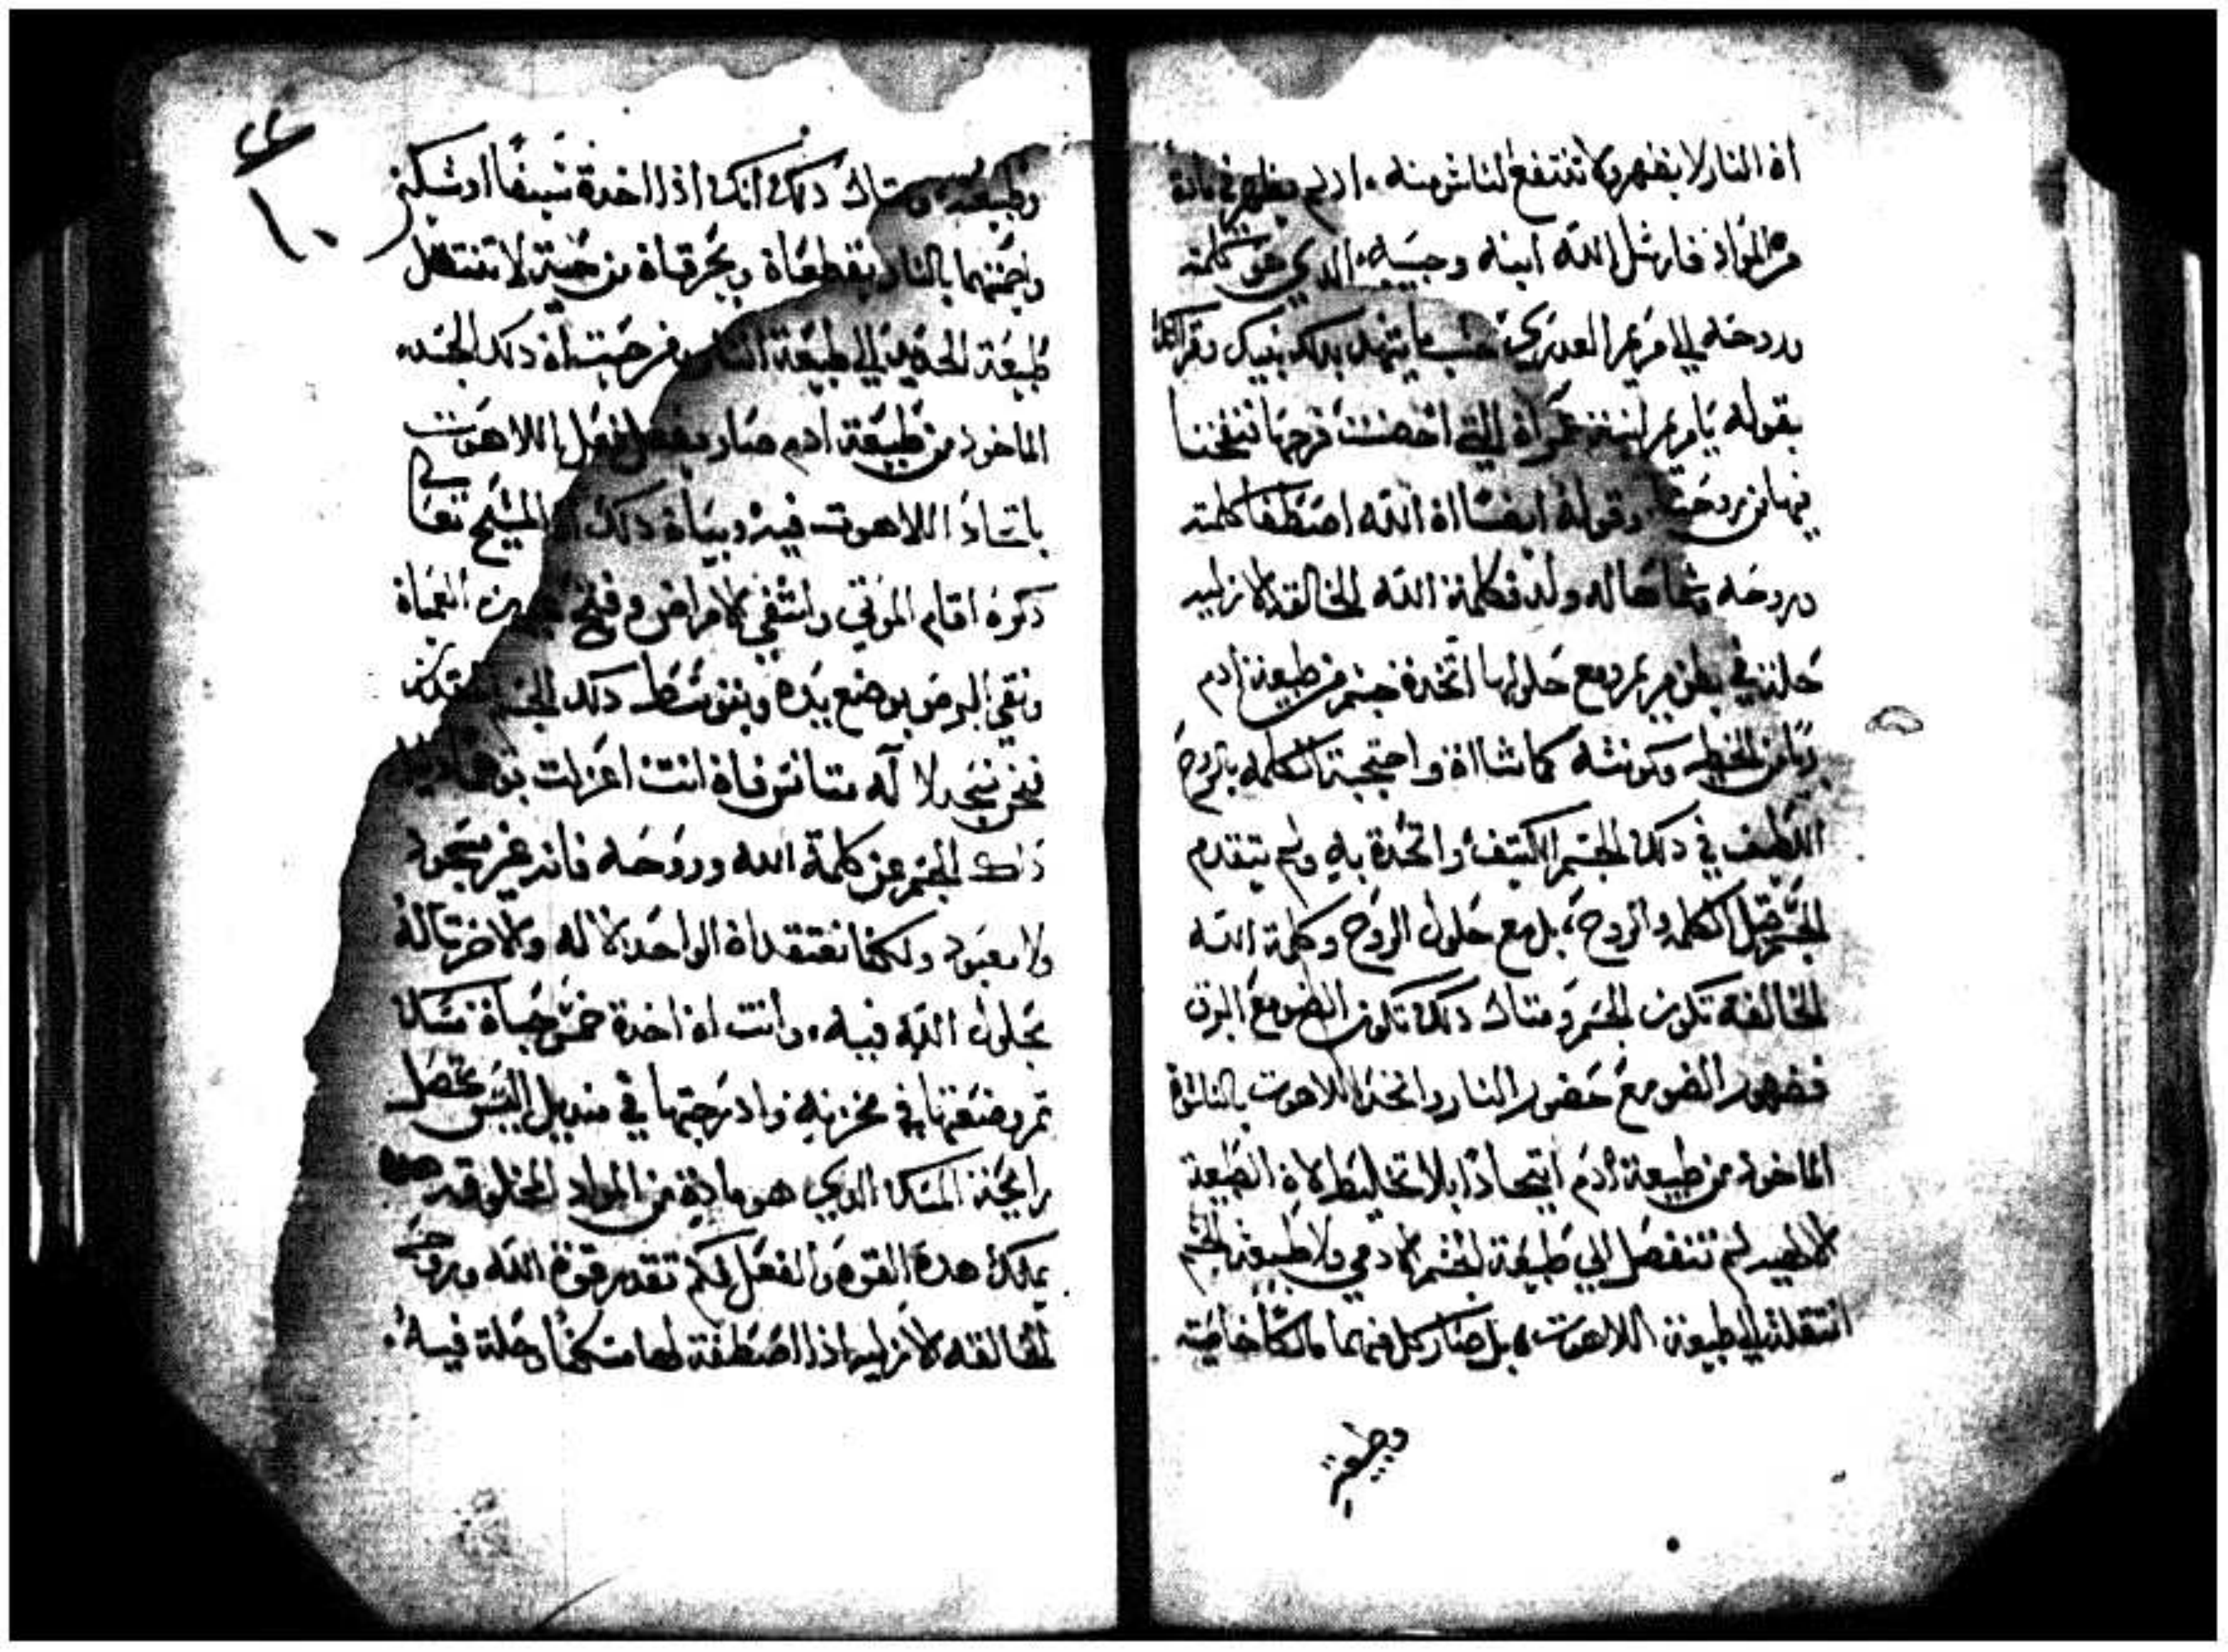 اة النار لا يضهر ولا تنتفع لناس منه ادلم يظهر في مادة
من المواد فارسل الله ابنه وحبيبه الدي هو كلمته
وروحه الي مريم العدري حسب ما يشهد بدلك نبيك وقرانك
بقوله يا مريم ابنة عمراة التي احصنت فرجها فنفخنا
فيها من روحنا وقوله ايضا اة الله اصطفا كلمته
وروحه
ولد فكلمة الله الخالقه الازليه
حلة في بطن مريم ومع حلولها اتخدة جسم من طبيعة ادم
وكونته كما شااة واحتجبة الكلمه بالروح
اللطيف في دلك الجسم الكتيف واتحدة به ولم يتقدم
الجسم قبل الكلمه والروح، بل مع حلول الروح وكلمة الله
الخالقة تكون الجسم ومتال دلك تكون الضو مع البرق
فضهور الضو مع حضور النار واتحد اللاهوت بالناسوة
الماخود من طبيعة ادم اتحادا بلا تخليط لاة الطبيعة
الالهيه لم تنفصل الي طبيعة الجسم الادمي ولا طبيعة الجسم
انتقلة الي طبيعة اللاهوت، بل صار كل منهما مالكا خاصيته
وطبيعته
٢٤
١٠
وطبيعته ومتال دلك انك اذا اخدة سيفا او سكين
واحميتهما بالنار يقطعاة ويحرقاة من حيت لا تنتقل
طبيعة الحديد الي طبيعة النار فمن حيت اة دلك الجسد
الماخود من طبيعة ادم صار يفعل فعل اللاهوت
باتحاد اللاهوت فيه وبياة دلك اة المسيح تعالي
دكره اقام الموتي واشفي الامراض وفتح العمياة
ونقي البرص بوضع يده وبتوسط دلك الجسم
فنحن نسجد لا له متانس فاة انت اعزلت بوهمك
داك الجسم عن كلمة الله وروحه فانه غير مسجود
ولا معبود ولكننا نعتقد اة الواحد الاله والاخر تاله
بحلول الله فيه. وانت اة اخدة خمس حصاة مسك
تم وضعتها في مخزنه وادرجتها في منديل اليس تحصل
رايحة المسك الدي هو مادة من المواد المخلوقه
يملك هدة القوه والفعل فكم تقدر قوة الله وروحه
الخالقه الازليه اذا اصطفة لها مسكنا وحلة فيه.